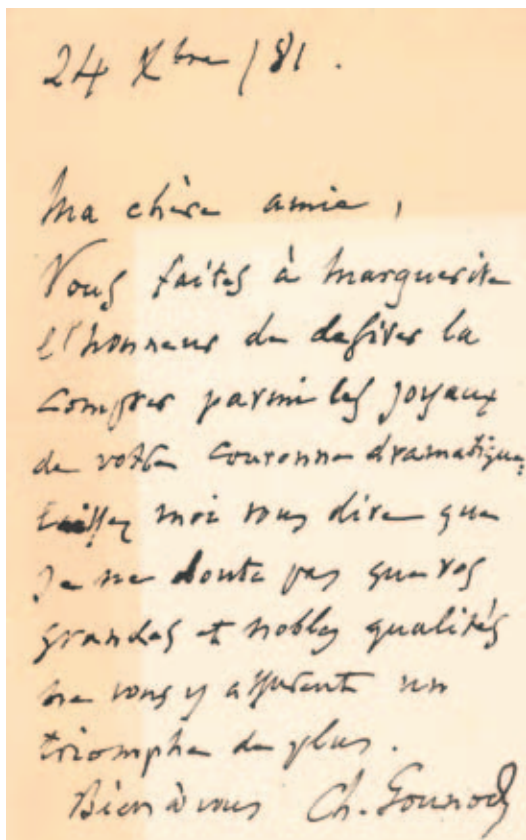 24 Xbre / 81.
Ma chère amie,
Vous faites à Marguerite
l'honneur de desirer la
compter parmi les joyaux
de votre couronne dramatique,
laissez moi vous dire que
je ne doute pas que vos
grandes et nobles qualités
ne vous y assurent un
triomphe de plus.
Bien à vous Ch. Gounod